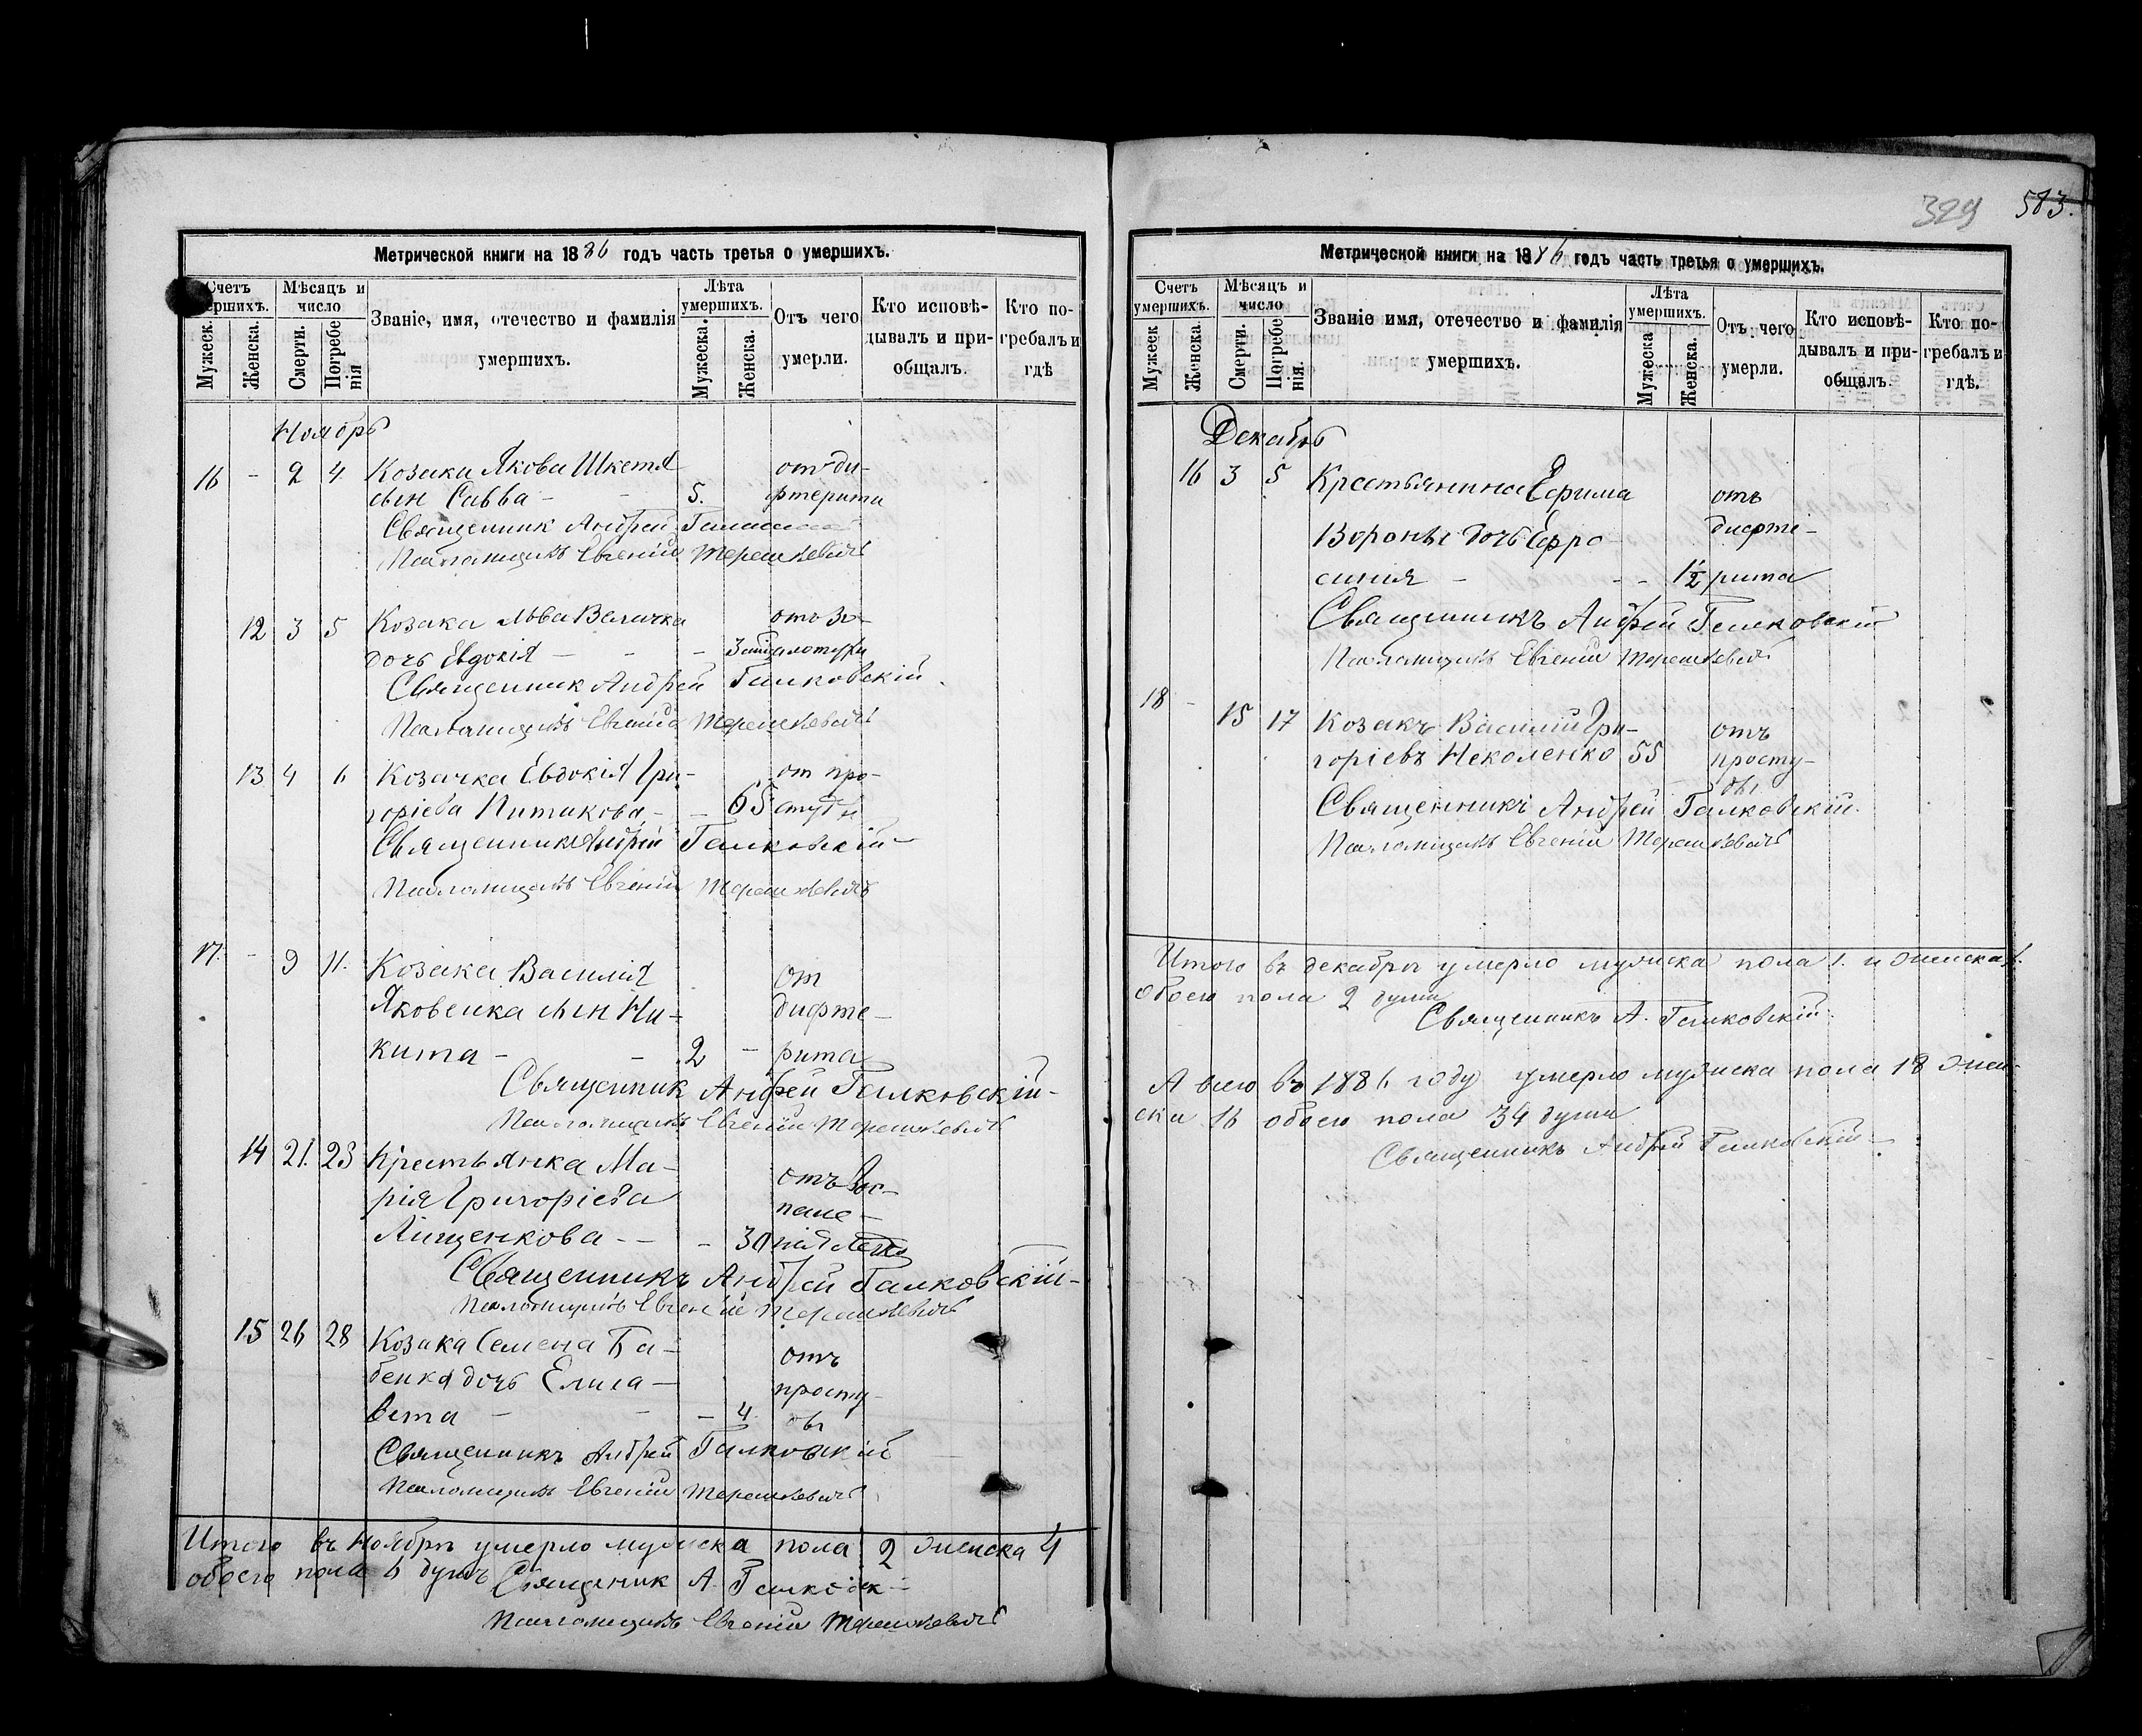 329 583.
Метрической книги на 1886 годъ часть третья о умершихъ.
Счетъ умершихъ. Мѣсяцъ и число Званіе, имя, отечество и фамилія умершихъ. Лѣта умершихъ. Отъ чего умерли. Кто исповѣдывалъ и приобщалъ. Кто погребалъ и гдѣ
Мужеск. Женска. Смерти. Погребенія Мужеска. Женска.
Ноябрь
16 - 2 4. Козака Якова Шкетя от ди-
сын Савва - - 5. фтерита
Священник Андрей
Псаломщикъ Евгеній Терешкевичъ
12 3 5 Козака Льва Величка отъ зо-
дочь Евдокія - - - 3
Священник Андрей Галковскій.
Псаломщикъ Евгеній Терешкевичъ
13 4 6 Козачка Евдокія Гри- от про-
горіева Питакова - - 65 студы
Священникъ Андрей Галковскій
Псаломщикъ Евгеній Терешкевичъ
17. - 9 11. Козака Василія От
Яковенка сын Ни- дифте-
кита - - 2 - рита
Священник Андрей Галковскій-
Псаломщикъ Евгеній Терешкевичъ
14 21. 23 Крестьянка Ма- отъ вос-
рія Григоріева пале-
Лищенкова - - - 30 нія
Священникъ Андрей Галковскій-
Псаломщикъ Евгеній Терешкевичъ
15 26 28 Козака Семена Ба- отъ
бенка дочь Елиса- просту-
вета - - - 4. ды
Священникъ Андрей Галковскій
Псаломщикъ Евгеній Терешкевичъ
Итого въ Ноябрѣ умерло мужеска пола 2 женска 4
обоего пола 6 душъ Священик А. Галковск-
Псаломщикъ Евгеній Терешкевичъ
Метрической книги на 1886 годъ часть третья о умершихъ.
Счетъ умершихъ. Мѣсяцъ и число Званіе имя, отечество и фамилія умершихъ. Лѣта умершихъ. Отъ чего умерли. Кто исповѣдывалъ и приобщалъ. Кто погребалъ и гдѣ.
Мужеск Женска. Смерти. Погребенія. Мужеска Женска.
Декабрь
16 3 5 Крестьянина Ефима отъ
дочь Ефро- дифте-
синія - - - 1½ рита
Священникъ Андрей Галковскій
Псаломщикъ Евгеній Терешкевичъ
18 - 15 17 Козакъ Василій Гри- отъ
горіевъ Неколенко 55 просту-
ды
Священникъ Андрей Галковскій.
Псаломщикъ Евгеній Терешкевичъ
Итого въ декабрѣ умерло мужеска пола 1. и женска 1.
обоего пола 2 души
Священникъ А. Галковскій.
А всего въ 1886 году умерло мужеска пола 18 жен-
ска 16 обоего пола 34 души
Священникъ Андрей Галковскій